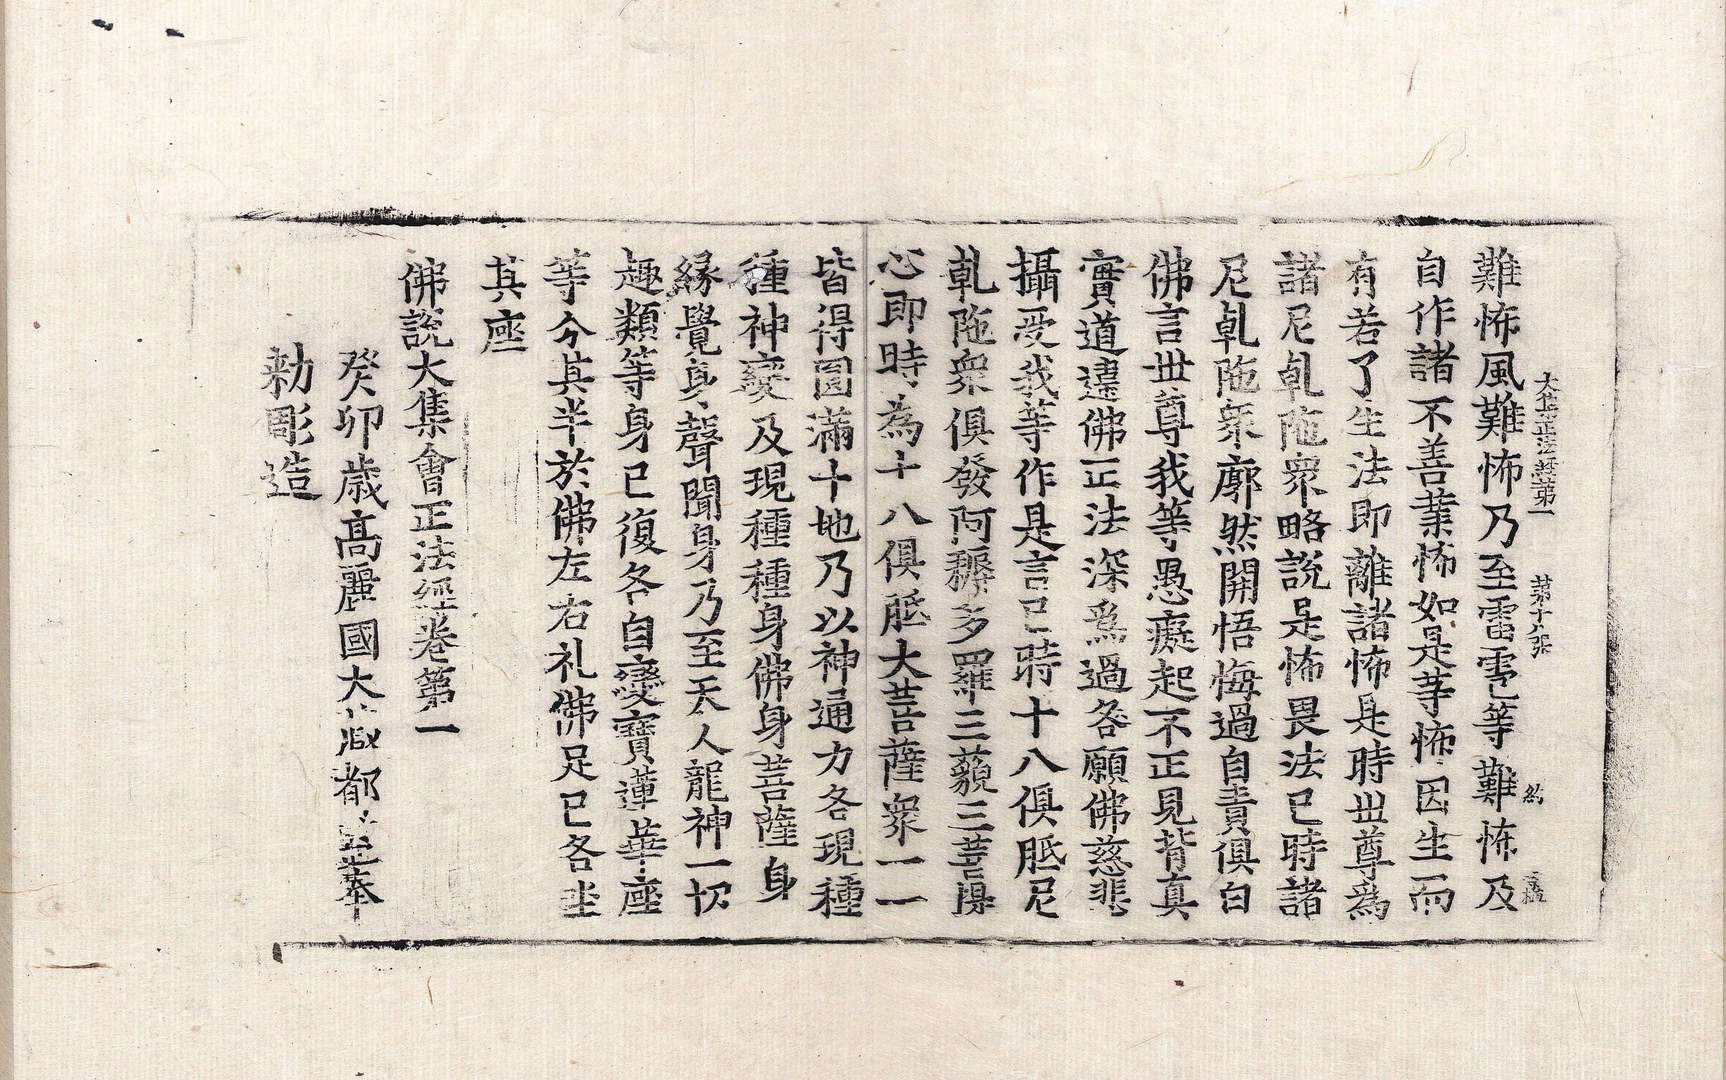 大集正法經第一 第十八張 約
難怖風難怖乃至雷雹等難怖及
自作諸不善業怖如是等怖因生而
有若了生法即離諸怖是時世尊為
諸尼乹陁衆略說是怖畏法已時諸
尼乹陁衆廓然開悟悔過自責俱白
佛言世尊我等愚癡起不正見背真
實道違佛正法深為過咎願佛慈悲
攝受我等作是言已時十八俱胝尼
乹陁衆俱發阿耨多羅三藐三菩提
心即時為十八俱胝大菩薩衆一一
皆得圓滿十地乃以神通力各現種
種神變及現種種身佛身菩薩身
緣覺身聲聞身乃至天人龍神一切
趣類等身已復各自變寶蓮華座
等分其半於佛左右礼佛足已各坐
其座
佛說大集會正法經卷第一
癸卯歲高麗國大藏都監奉
勑彫造